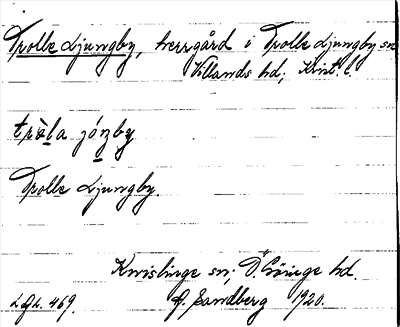 Trolle Ljungby, herrgård i Trolle Ljungby sn
Villands hd; Krist. l.
tròla jónby
Trolle Ljungby.
Knislinge sn; Ö. Göinge hd.
LGL. 469. G. Sandberg 1920.